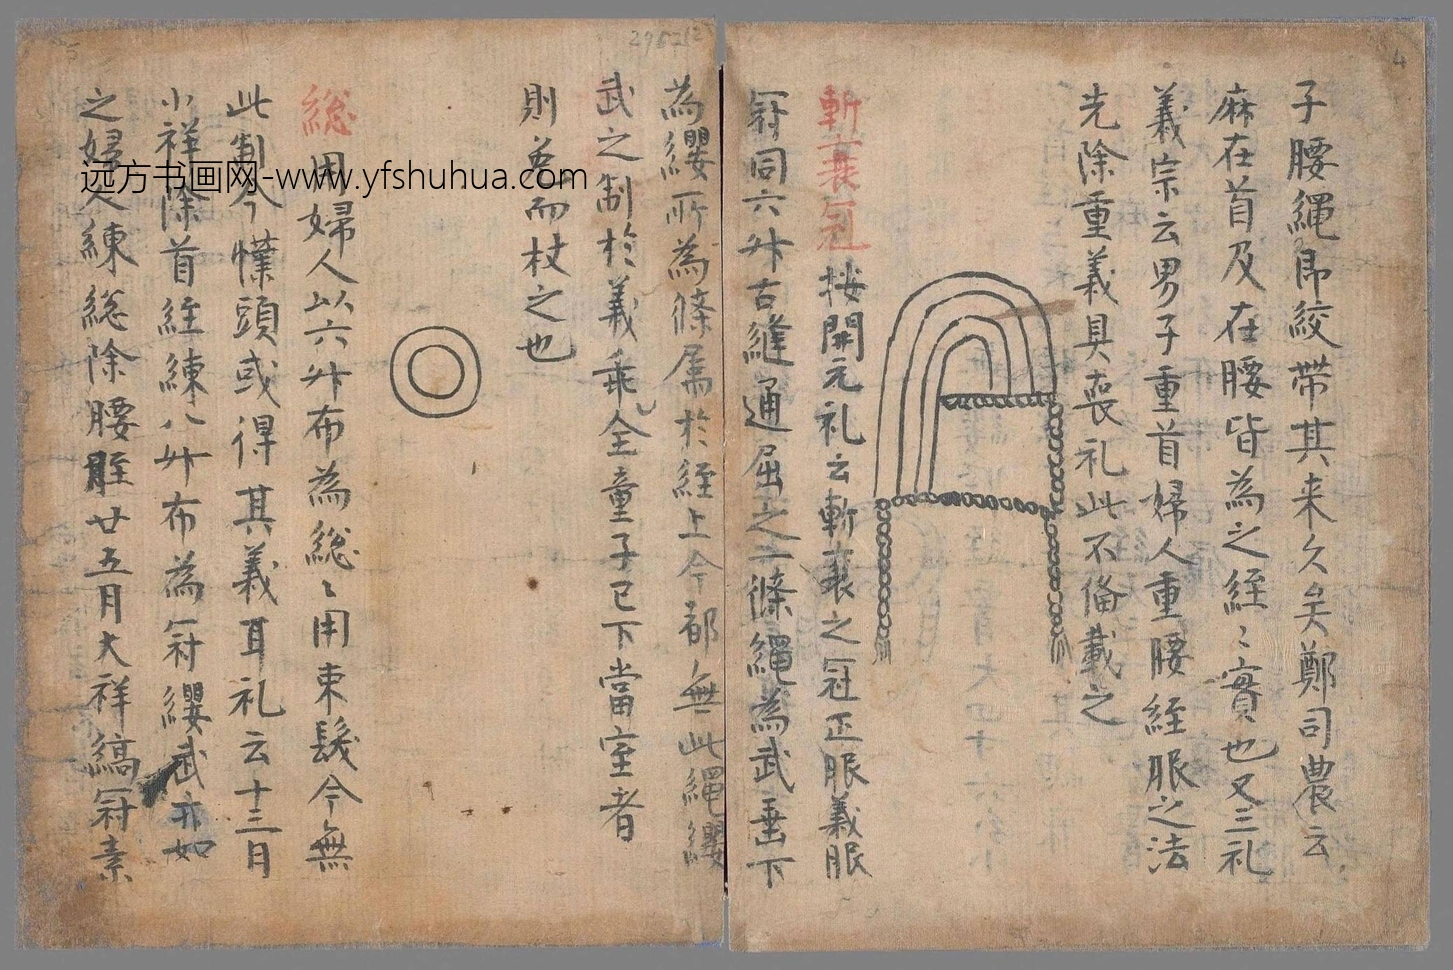 子腰繩即絞带其来久矣鄭司農云
麻在首及在腰皆為之絰〻實也又三礼
義宗云男子重首婦人重腰絰服之法
先除重義具喪礼此不俻載之
斬衰冠 按開元礼云斬衰之冠正服義服
冠同六升古縫通屈之一條繩為武垂下
為纓所為條属於絰上今都無此繩纓
武之制於義乖全童子已下當室者
則免而杖之也
総 因婦人以六升布為総〻用束髮今無
此制今幞頭或得其義耳礼云十三月
小祥除首絰練八升布為冠纓武亦如
之婦人練総除腰絰廿五月大祥縞冠素
远方书画网-www.yfshuhua.com
4
5